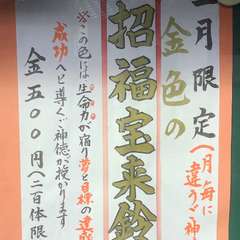 月限定
金色の
一月毎に
違うご神
招福宝来鈴
※この色は生命力が宿り夢と目標の達成
成功へと導くご神徳が授かります
金五〇〇円(二百体限